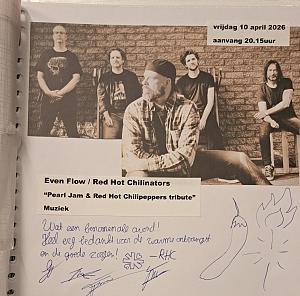 vrijdag 10 april 2026
aanvang 20.15uur
Even Flow / Red Hot Chilinators
"Pearl Jam & Red Hot Chilipeppers tribute"
Muziek
Wat een fenomenale avond!
Heel erg bedankt voor de warme ontvangst
en de goede zorgen! - RHC